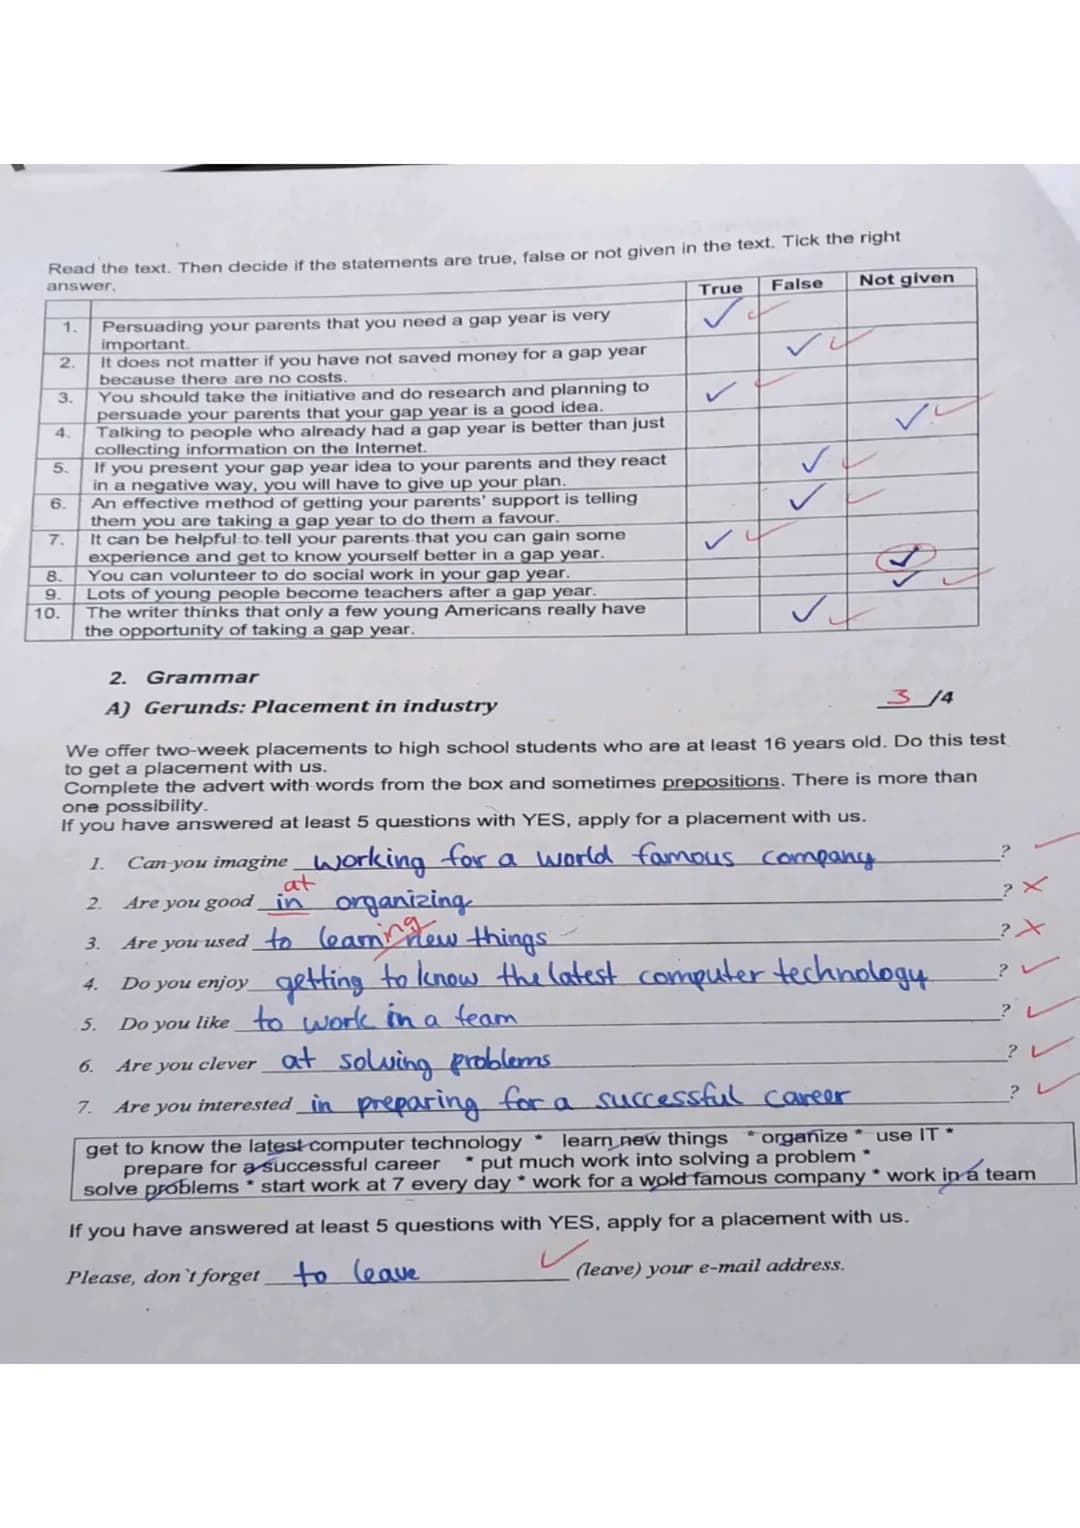 Read the text. Then decide if the statements are true, false or not given in the text. Tick the right
answer.
True False Not given
1. Persuading your parents that you need a gap year is very
important.
2. It does not matter if you have not saved money for a gap year
because there are no costs.
3. You should take the initiative and do research and planning to
persuade your parents that your gap year is a good idea.
4. Talking to people who already had a gap year is better than just
collecting information on the Internet.
5. If you present your gap year idea to your parents and they react
in a negative way, you will have to give up your plan.
6. An effective method of getting your parents' support is telling
them you are taking a gap year to do them a favour.
7. It can be helpful to tell your parents that you can gain some
experience and get to know yourself better in a gap year.
8. You can volunteer to do social work in your gap year.
9. Lots of young people become teachers after a gap year.
10. The writer thinks that only a few young Americans really have
the opportunity of taking a gap year.
2. Grammar
A) Gerunds: Placement in industry 3 /4
We offer two-week placements to high school students who are at least 16 years old. Do this test
to get a placement with us.
Complete the advert with words from the box and sometimes prepositions. There is more than
one possibility.
If you have answered at least 5 questions with YES, apply for a placement with us.
1. Can you imagine working for a world famous company ?
at
2. Are you good in organizing ?
3. Are you used to learn ing new things ?
4. Do you enjoy getting to know the latest computer technology ?
5. Do you like to work in a team ?
6. Are you clever at solving problems ?
7. Are you interested in preparing for a successful career ?
get to know the latest computer technology * learn new things * organize * use IT *
prepare for a successful career * put much work into solving a problem *
solve problems * start work at 7 every day * work for a wold famous company * work in a team
If you have answered at least 5 questions with YES, apply for a placement with us.
Please, don`t forget to leave (leave) your e-mail address.